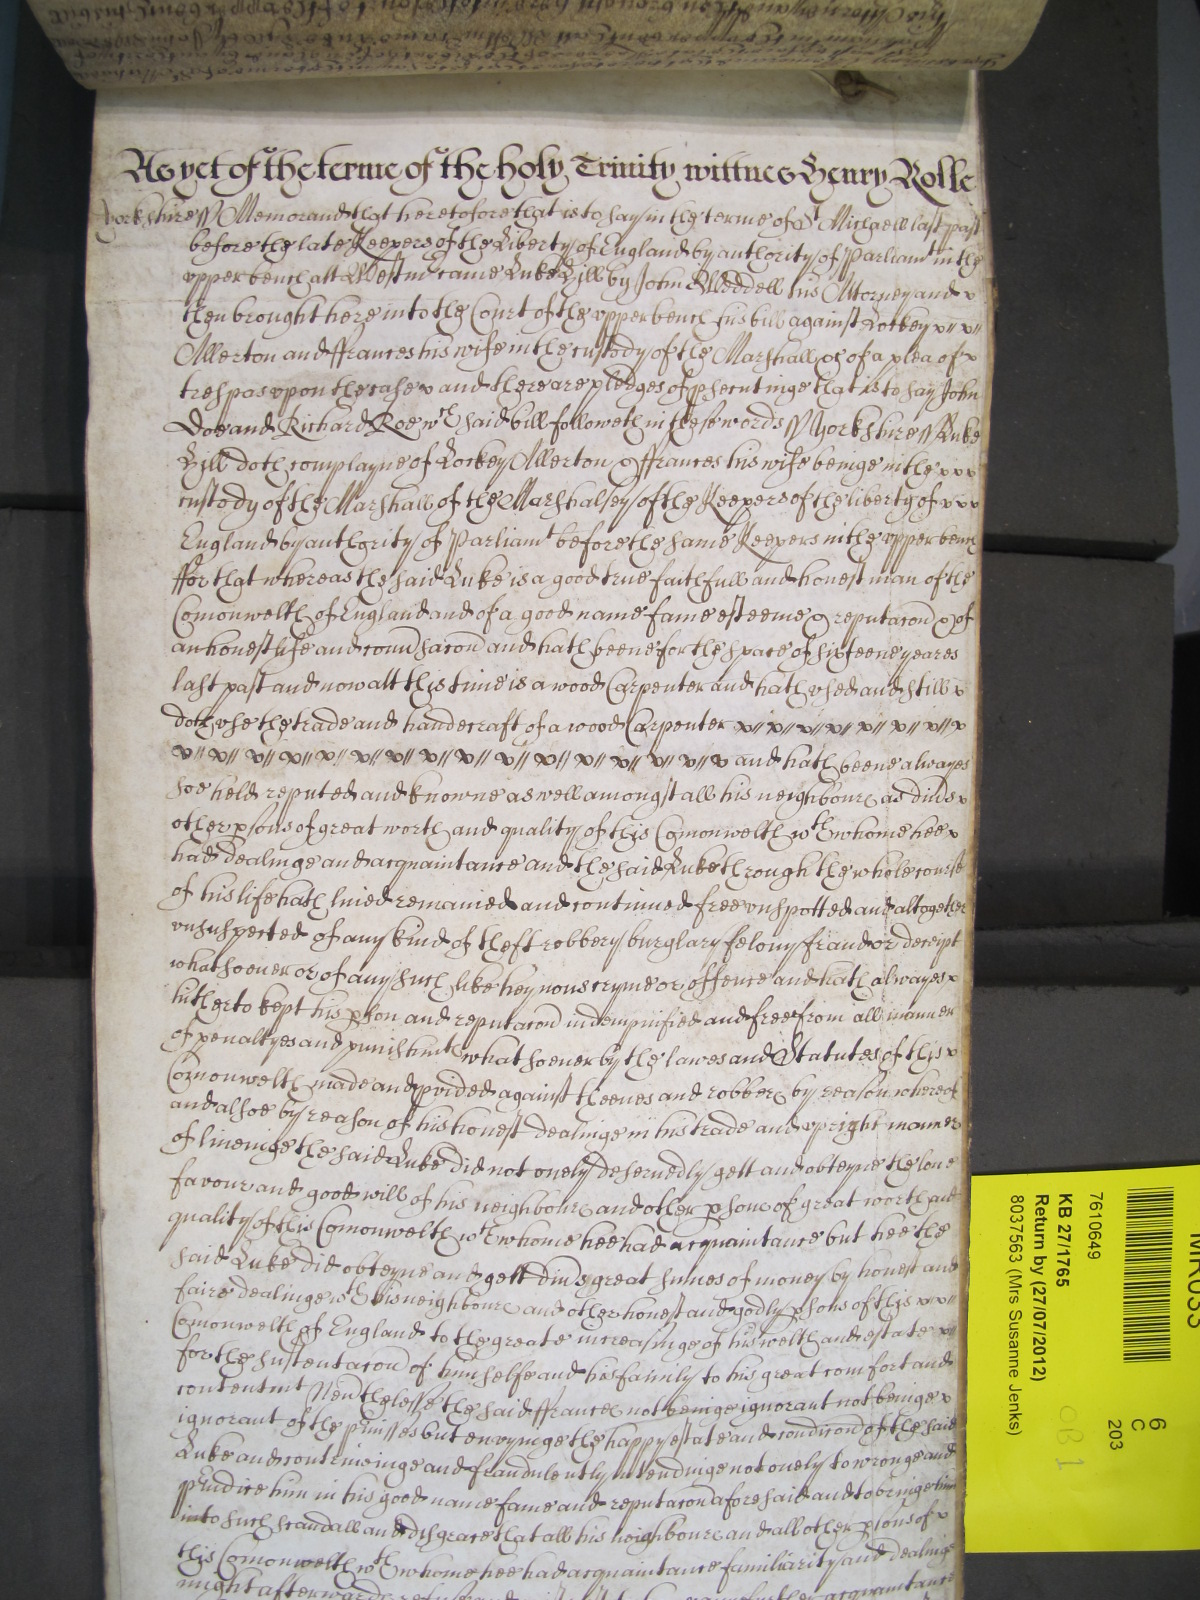 As yet of the terme of the holy Trinity wittnes Henry Rolle
Yorkshire ss Memorand that heretofore that is to say in the terme of St Michaell last past
before the late Keepers of the Liberty of England by authority of Parliamt in the
upper bench att Westmr came Luke Zill by John Weddell his Attorney and
then brought here into the Court of the upper bench his bill against Lockey
Allerton and ffrances his wife in the custody of the Marshall &c of a plea of
trespas upon the case and there are pledges of psecutinge that is to say John
Doe and Richard Roe wch said bill followeth in these words ss Yorkshire ss Luke
Zill doth complayne of Lockey Allerton & ffrances his wife beinge in the
custody of the Marshall of the Marshalsey of the Keepers of the liberty of
England by authority of Parliamt before the same Keepers in the upper bench
ffor that whereas the said Luke is a good true faithfull and honest man of the
Comonwelth of England and of a good name fame esteeme & reputacon & of
an honest life and convsacon and hath beene for the space of sixteene yeares
last past and now att this time is a wood Carpenter and hath used and still
doth use the trade and handecraft of a wood Carpenter
and hath beene alwayes
soe held reputed and knowne as well amongst all his neighboures as divs
other psons of great worth and quality of this Comonwelth wth whome hee
had dealinge and acquaintance and the said Luke through the whole course
of his life hath lived remained and continued free unspotted and altogether
unsuspected of any kind of theft robbery burglary felony fraud or deceipt
whatsoever or of any such like heynous cryme or offence and hath alwayes
hitherto kept his pson and reputacon indempnified and free from all manner
of penaltyes and punishmts whatsoever by the lawes and Statutes of this
Comonwelth made and pvided against theeves and robbers by reason whereof
and alsoe by reason of his honest dealinge in his trade and upright manner
of liveinge the said Luke did not onely deservedly gett and obteyne the love
favour and good will of his neighboures and other psons of great worth and
quality of this Comonwelth wth whome hee had acquaintance but hee the
said Luke did obteyne and gett divs great sumes of money by honest and
faire dealinge wth his neighboures and other honest and godly psons of this
Comonwelth of England to the greate increasinge of his welth and estate
for the sustentacon of himselfe and his family to his great comfort and
contentmt Nevthelesse the said ffrances not beinge ignorant not beinge
ignorant of the pmisses but envyinge the happy estate and condicon of the said
Luke and contriveinge and fraudulently intendinge not onely to wronge and
pjudice him in his good name fame and reputacon aforesaid and to bringe him
into such scandall and disgrace that all his neighboures and all other psons of
this Comonwelth wth whome hee had acquaintance familiarity and dealinge
might afterwards acquaintance
7610649
KB 27/1765
Return by (27/07/2012)
8037563 (Mrs Susanne Jenks)
6
C
203
MR033